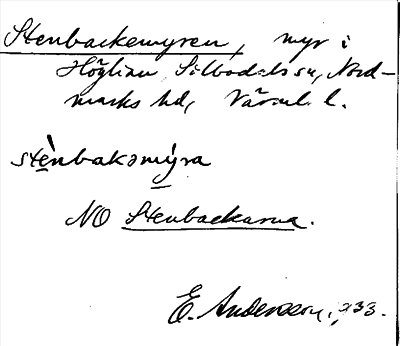 Stenbackemyren, myr i
Höglian, Silbodals sn, Nord-
marks hd, Värml. l.
stènbakəmýra
NO Stenbackarna.
E. Anderson, 1933.